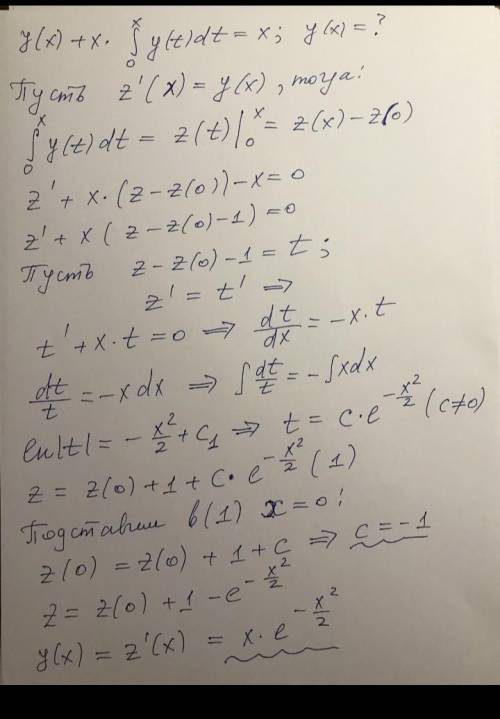 y(x) + x · ∫₀ˣ y(t)dt = x; y(x) = ?
Пусть z'(x) = y(x), тогда:
∫₀ˣ y(t)dt = z(t)|₀ˣ = z(x) – z(0)
z' + x·(z – z(0)) – x = 0
z' + x(z – z(0) – 1) = 0
Пусть z – z(0) – 1 = t;
z' = t' ⇒
t' + x·t = 0 ⇒ dt/dx = –x·t
dt/t = –xdx ⇒ ∫dt/t = –∫xdx
ln|t| = –x²/2 + c₁ ⇒ t = c·e^(–x²/2) (c≠0)
z = z(0) + 1 + c·e^(–x²/2) (1)
Подставим в (1) x = 0:
z(0) = z(0) + 1 + c ⇒ c = –1
z = z(0) + 1 – e^(–x²/2)
y(x) = z'(x) = x·e^(–x²/2)